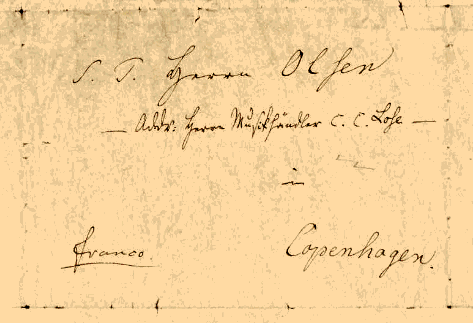 S. T. Herrn Olsen
— Addr: Herrn Musikhändler C. C. Lose —
in
franco.
Copenhagen.